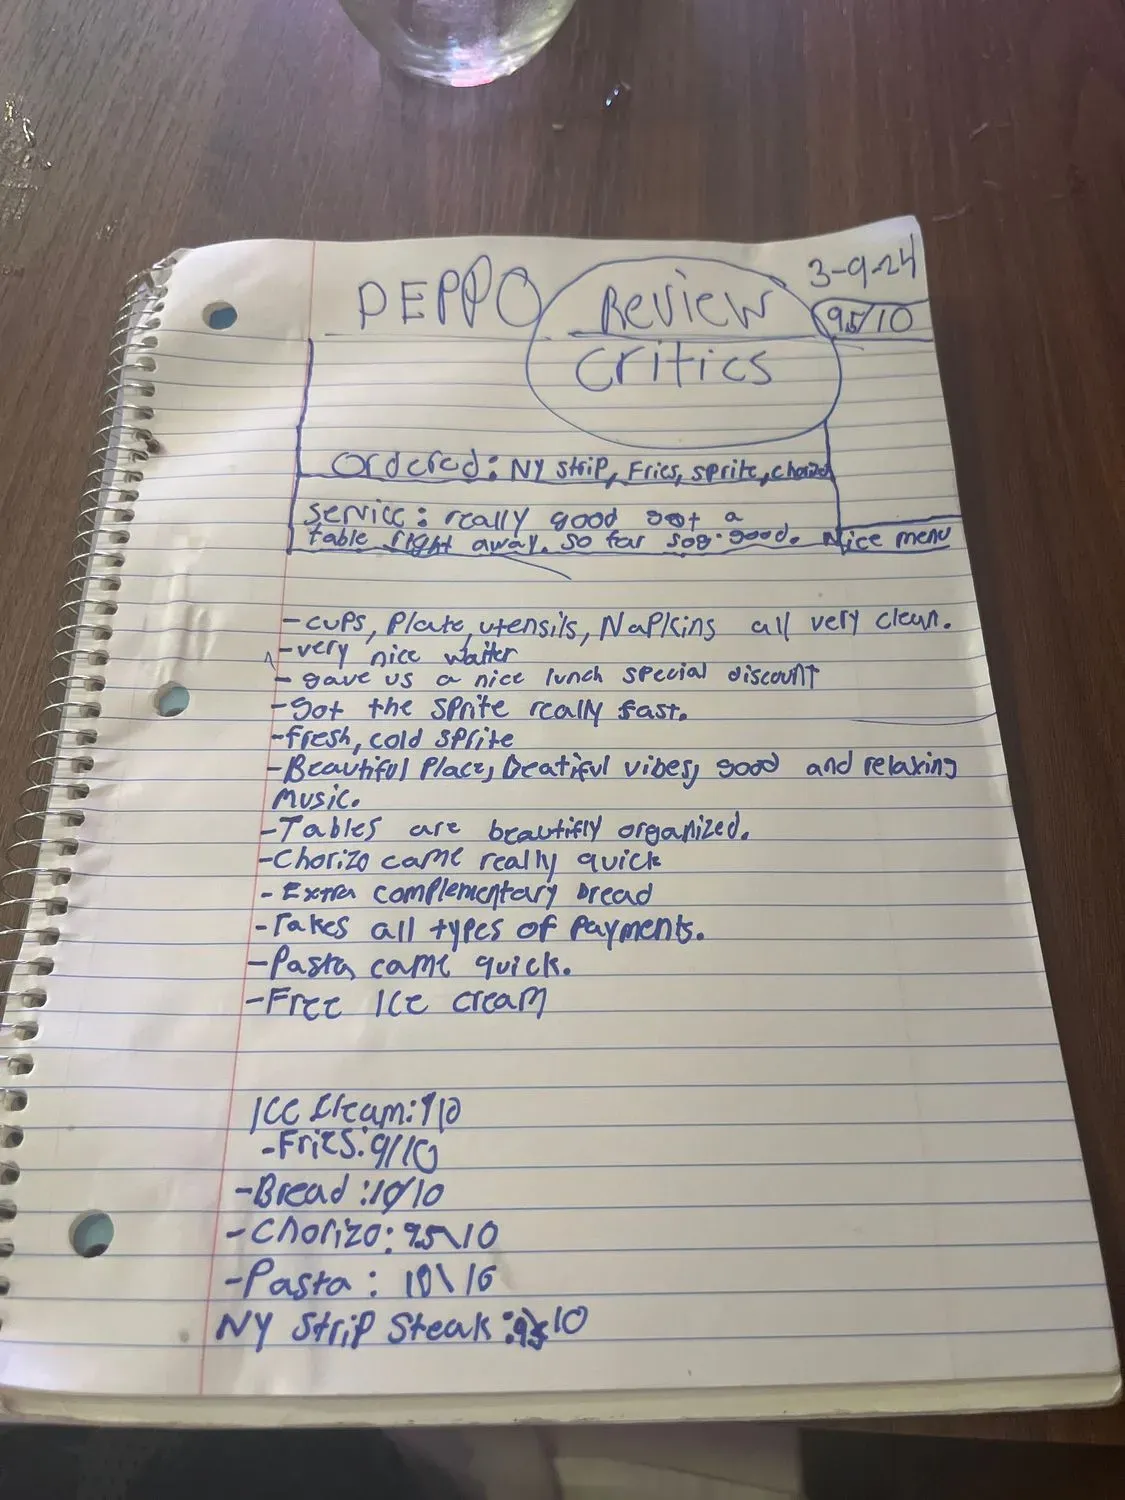 PEPPO Review 3-9-24
95/10
Critics
Ordered: NY Strip, Fries, Sprite, chorizo
Service: really good got a
table right away. so far soo good. Nice menu
- cups, Plate, utensils, Napkins all very clean.
- very nice waiter
- gave us a nice lunch special discount
- Got the sprite really fast.
- fresh, cold sprite
- Beautiful Place, beatiful vibes, good and relaxing
Music.
- Tables are beautifly organized.
- Chorizo came really quick
- Extra complementary bread
- Takes all types of Payments.
- Pasta came quick.
- Free Ice cream
Ice cream:
- Fries: 9/10
- Bread: 10/10
- Chorizo: 95\10
- Pasta: 10\10
NY Strip Steak: 10